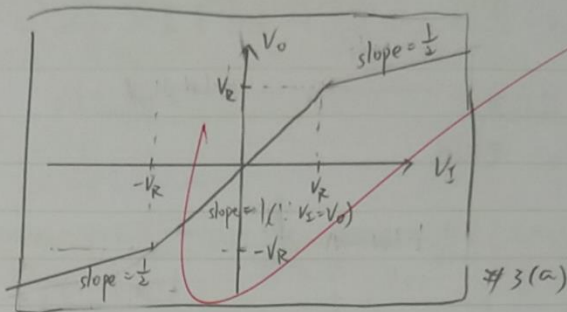 V₀
slope = 1/2
V_R
-V_R
V_R
V_I
slope = 1 (∵ V_I = V₀)
-V_R
slope = 1/2
#3(a)